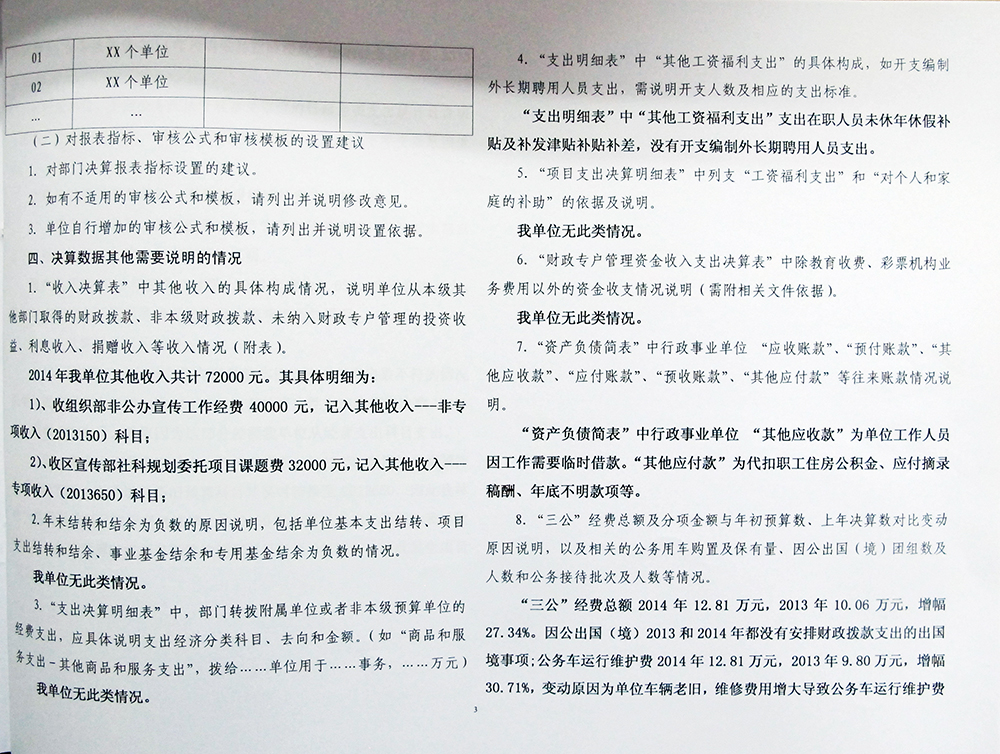 01 XX 个单位
02 XX 个单位
… …
(二)对报表指标、审核公式和审核模板的设置建议
1. 对部门决算报表指标设置的建议。
2. 如有不适用的审核公式和模板，请列出并说明修改意见。
3. 单位自行增加的审核公式和模板，请列出并说明设置依据。
四、决算数据其他需要说明的情况
1.“收入决算表”中其他收入的具体构成情况，说明单位从本级其
他部门取得的财政拨款、非本级财政拨款、未纳入财政专户管理的投资收
益、利息收入、捐赠收入等收入情况（附表）。
2014 年我单位其他收入共计 72000 元。其具体明细为：
1)、收组织部非公办宣传工作经费 40000 元，记入其他收入---非专
项收入（2013150）科目；
2)、收区宣传部社科规划委托项目课题费 32000 元，记入其他收入---
专项收入（2013650）科目；
2.年末结转和结余为负数的原因说明，包括单位基本支出结转、项目
支出结转和结余、事业基金结余和专用基金结余为负数的情况。
我单位无此类情况。
3.“支出决算明细表”中，部门转拨附属单位或者非本级预算单位的
经费支出，应具体说明支出经济分类科目、去向和金额。（如“商品和服
务支出-其他商品和服务支出”，拨给……单位用于……事务，……万元）
我单位无此类情况。
4.“支出明细表”中“其他工资福利支出”的具体构成，如开支编制
外长期聘用人员支出，需说明开支人数及相应的支出标准。
“支出明细表”中“其他工资福利支出”支出在职人员未休年休假补
贴及补发津贴补贴补差，没有开支编制外长期聘用人员支出。
5.“项目支出决算明细表”中列支“工资福利支出”和“对个人和家
庭的补助”的依据及说明。
我单位无此类情况。
6.“财政专户管理资金收入支出决算表”中除教育收费、彩票机构业
务费用以外的资金收支情况说明（需附相关文件依据）。
我单位无此类情况。
7.“资产负债简表”中行政事业单位 “应收账款”、“预付账款”、“其
他应收款”、“应付账款”、“预收账款”、“其他应付款”等往来账款情况说
明。
“资产负债简表”中行政事业单位 “其他应收款”为单位工作人员
因工作需要临时借款。“其他应付款”为代扣职工住房公积金、应付摘录
稿酬、年底不明款项等。
8.“三公”经费总额及分项金额与年初预算数、上年决算数对比变动
原因说明，以及相关的公务用车购置及保有量、因公出国（境）团组数及
人数和公务接待批次及人数等情况。
“三公”经费总额 2014 年 12.81 万元，2013 年 10.06 万元，增幅
27.34%。因公出国（境）2013 和 2014 年都没有安排财政拨款支出的出国
境事项；公务车运行维护费 2014 年 12.81 万元，2013 年 9.80 万元，增幅
30.71%，变动原因为单位车辆老旧，维修费用增大导致公务车运行维护费
3